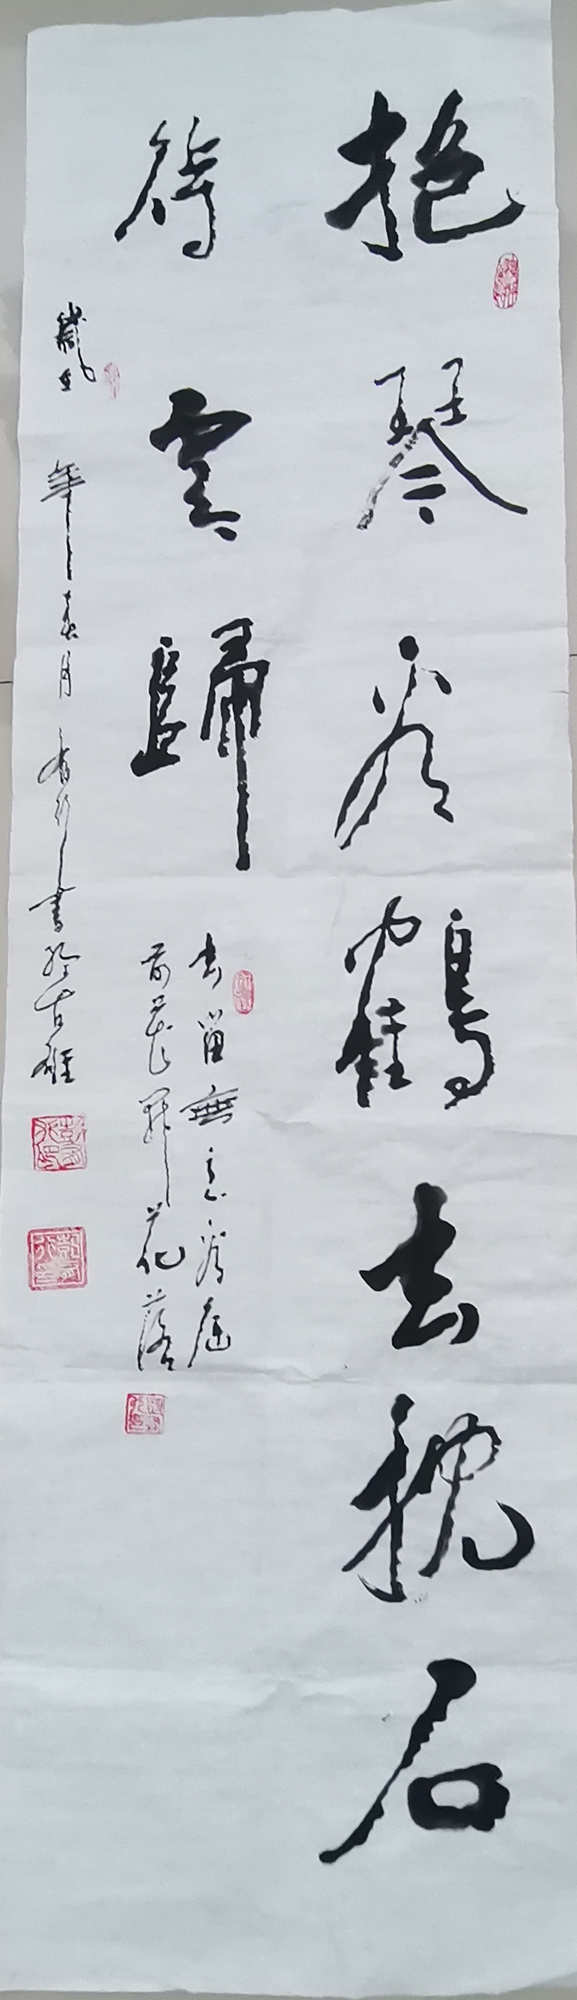 抱琴看鶴去枕石
待雲歸
去留無意看庭
前花開花落
年春月
書於古雄